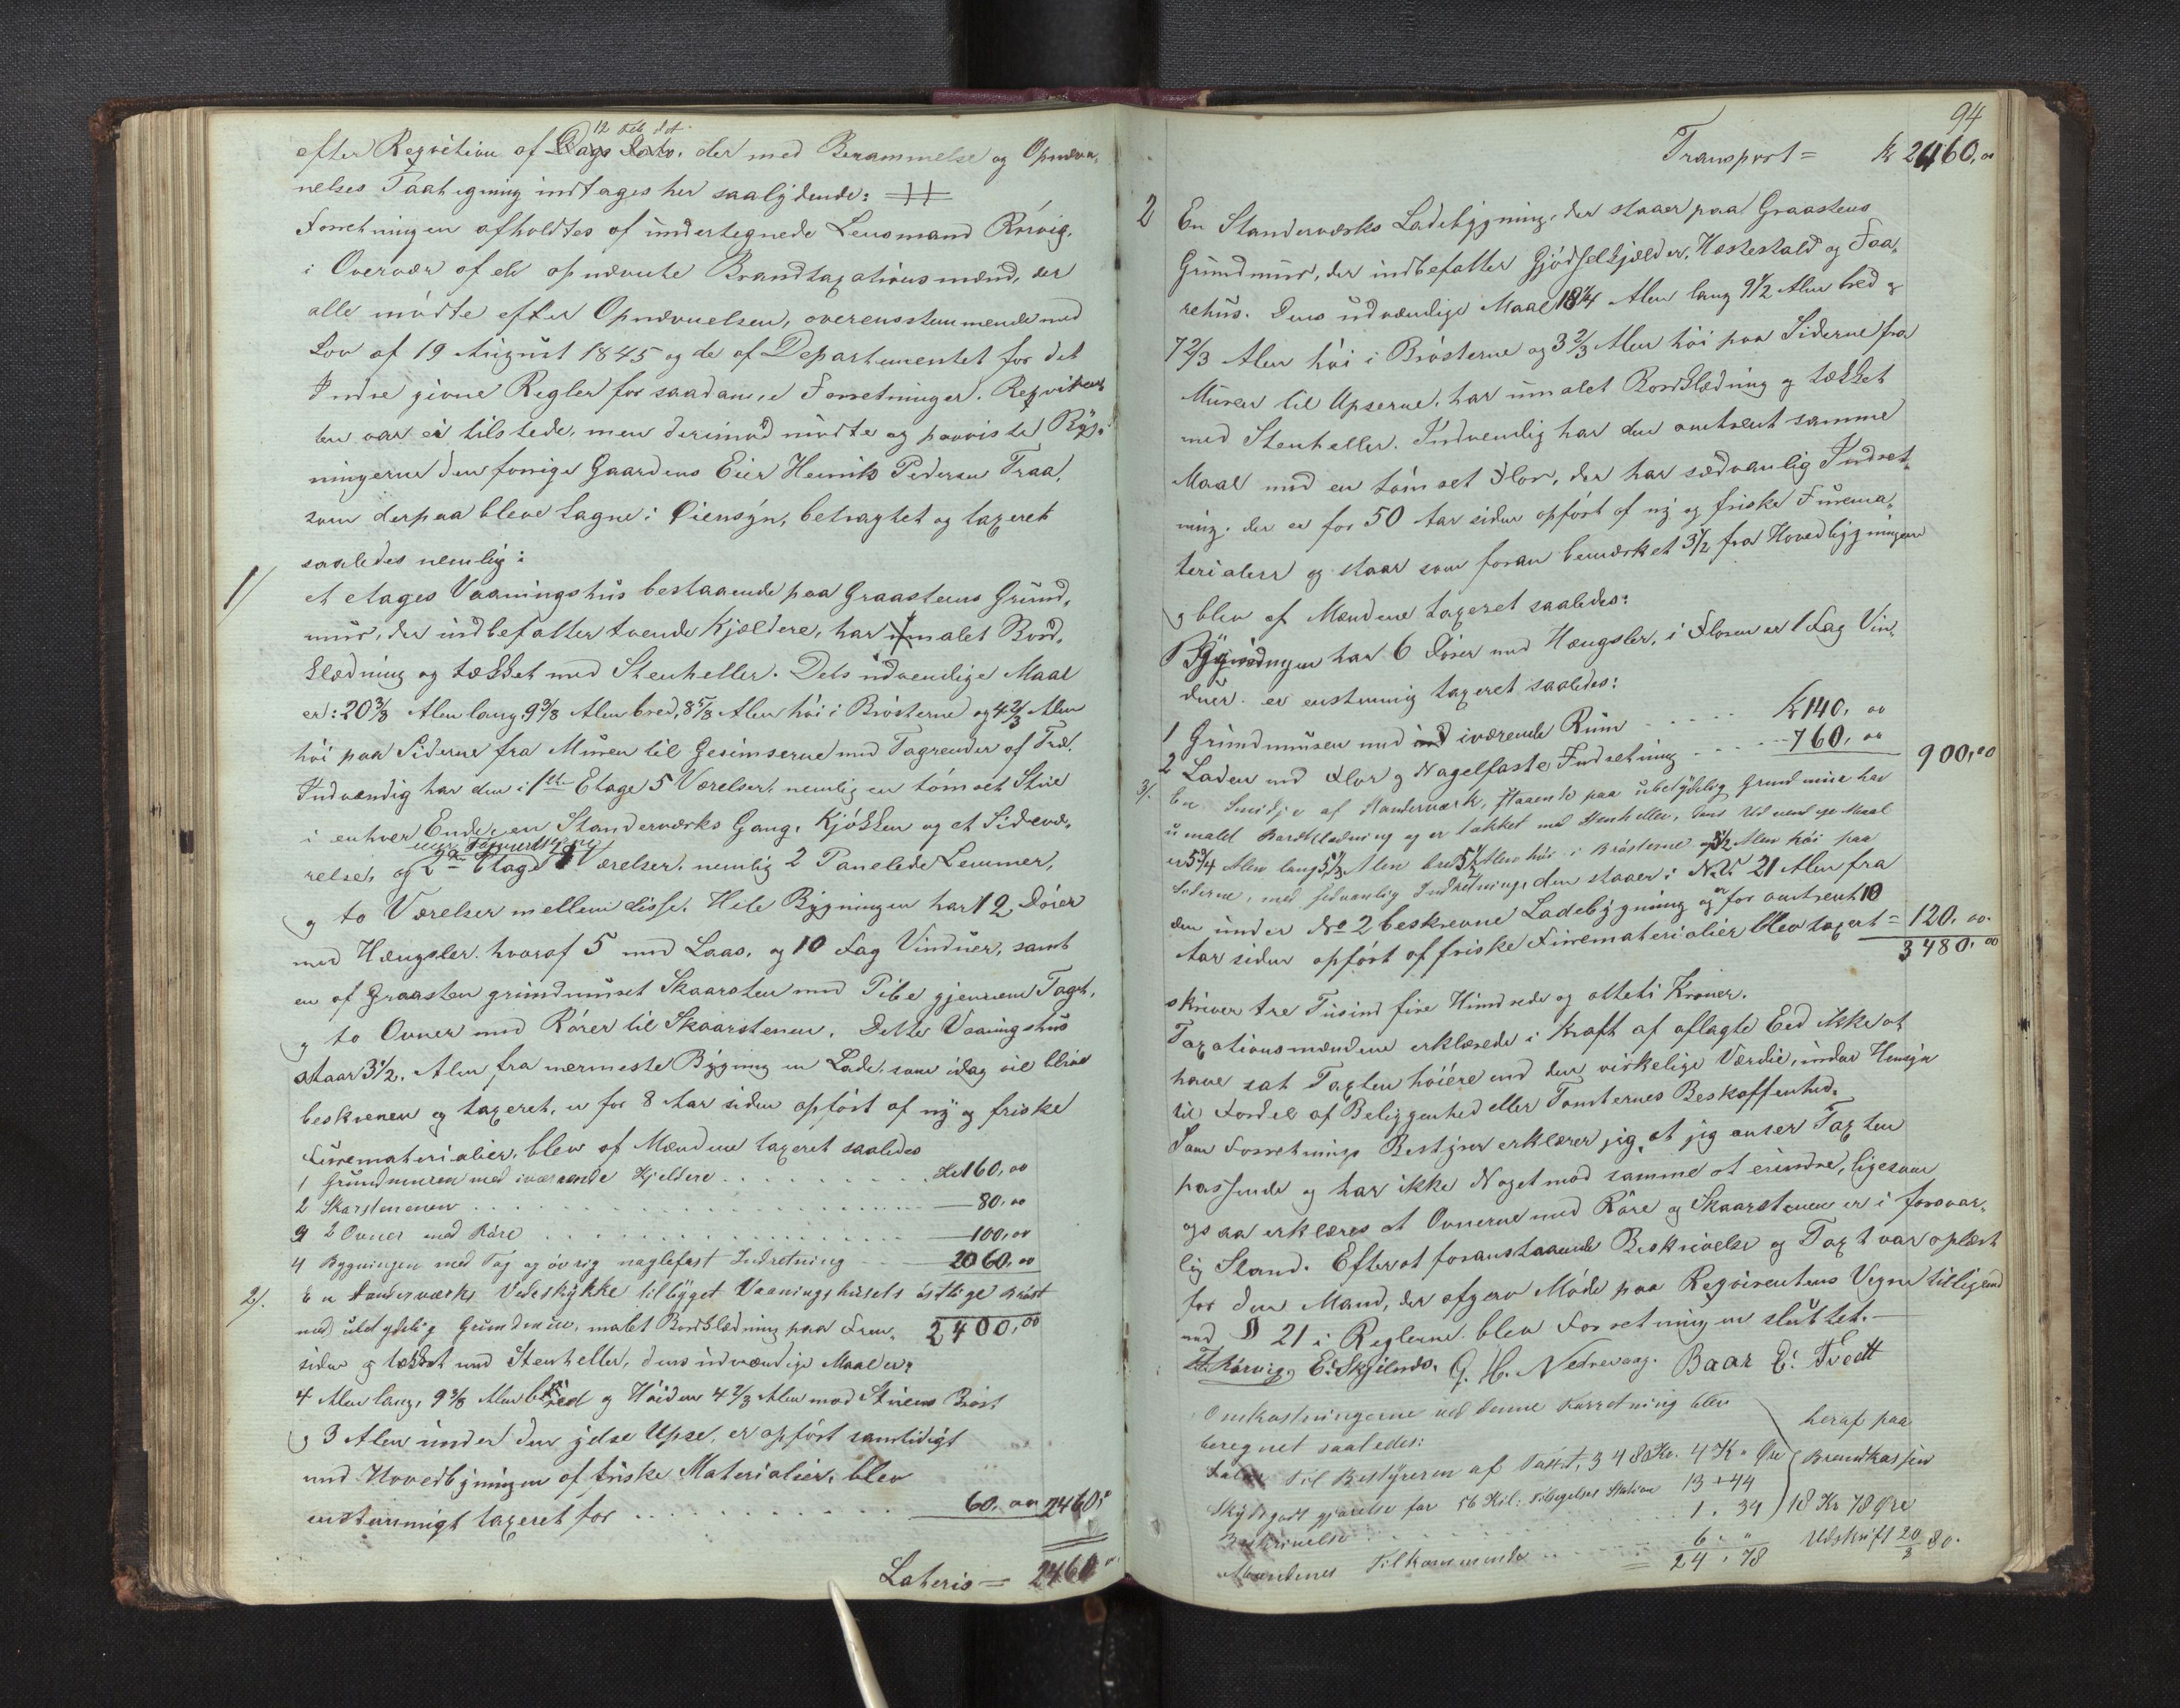 efter Reqvisition af 12 Feb. d.A. der med Berammelse og Opnæv-
nelses Paategning indtages her saalydende: #
Forretningen afholdtes af undertegnede Lensmand Rørvig,
i Overvær af de opnævnte Brandtaxationsmænd, der
alle mødte efter Opnævnelsen, overensstemmende med
Lov af 19 August 1845 og de af Departementet for det
Indre givne Regler for saadanne Forretninger. Reqviren-
ten var ei tilstede, men derimod mødte og paaviste Byg-
ningerne den forrige Gaardens Eier Henrik Pedersen Traa,
som derpaa bleve tagne i Øiensyn, betragtet og taxeret
saaledes nemlig:
1/ et etages Vaaningshus bestaaende paa Graasteens Grund-
muur, der indbefatter tvende Kjældere, har malet Bord-
klædning og tækket med Steenheller. Dets udvendige Maal
er: 20 3/8 Alen lang, 9 3/8 Alen bred, 8 5/8 Alen høi i Brøsterne og 4 2/3 Alen
høi paa Siderne fra Muren til Gesimserne med Tagrender af Træ.
Indvændig har den i 1ste Etage 5 Værelser, nemlig en tømret Stue
i enhver Ende, en Standerværks Gang, Kjøkken og et Sidevæ-
relse, og 2den Etage 4 Værelser, nemlig 2 Panelede Lemmer,
og to Værelser mellem disse. Hele Bygningen har 12 Døre
med Hængsler, hvoraf 5 med Laas, og 10 Fag Vinduer, samt
en af Graasten grundmuret Skaarsten med Pibe gjennem Taget,
og to Ovner med Rører til Skaarstenen. Dette Vaaningshus
staar 3 1/2 Alen fra nermeste Bygning en Lade, som idag vil blive
beskreven og taxeret, er for 8 Aar siden opført af ny og friske
Furematerialier, blev af Mændene taxeret saaledes
1 Grundmuren med iværende Kjeldere . . . . Kr 160,00
2 Skarstenenen . . . . — 80,00
3 2 Ovner med Røre . . . . — 100,00
4 Bygningen med Tag og øvrig naglefast Indretning - - - 2060,00
2/. En Standerværks Vedeskykke tilbygget Vaaningshusets østlige Brøst
med ubetydelig Grundmuur, malet Bordklædning paa Frem- 2400,00
siden og tækket med Steenheller, dens udvændige Maal er,
4 Alen lang, 9 3/8 Alen bred og Høiden 4 2/3 Alen mod Stuens Brøst
og 3 Alen under den ydre Upse, er opført samtidigt
med Hovedbygningen af friske Materialier, blev
enstemmigt taxeret for . . . . 60,00 2460,
Lateris = 2460
94
Transport = Kr 2460,00
2 En Standerværks Ladebygning, der staaer paa Graasteens
Grundmuur, der indbefatter Gjødselkjælder, Hestestald og Faa-
rehus. Dens udvændige Maal 18 1/4 Alen lang 9 1/2 Alen bred og
7 2/3 Alen høi i Brøsterne og 3 2/3 Alen høi paa Siderne fra
Muren til Upserne, har umalet Bordklædning og tækket
med Steenheller. Indvendig har den omtrent samme
Maal med en tømret Flor, der har sædvanlig Indret-
ning, der er for 50 Aar siden opført af ny og friske Furema-
terialier og staar som foran bemærket 3 1/2 fra Hovedbygningen
og blev af Mændene taxeret saaledes:
Bygningen har 6 Døre med Hængsler, i Floren er 1 Fag Vin-
duer. er enstemmig taxeret saaledes:
1 Grundmuren med iværende Rum - - - - Kr 140,00
2 Laden med Flor og Nagelfaste Indretning - - - - 760,00 900,00
3/. En Smidje af Standerværk, staaende paa ubetydelig Grundmuur har
umalet Bordklædning og er tækket med Steenheller, dens Udvendige Maal
er 5 3/4 Alen lang 5 1/3 Alen bred 5 1/2 Alen høi i Brøsterne og 3 1/2 Alen høi paa
Siderne, med sedvanlig Indretning, den staaer i N.V. 21 Alen fra
den under No 2 beskrevne Ladebygning og er for omtrent 10
Aar siden opført af friske Furematerialier blev taxert = 120,00.
3480,00
skriver tre Tusind fire Hundrede og otteti Kroner.
Taxationsmændene erklærede i Kraft af aflagte Eed ikke at
have sat Taxten høiere end den virkelige Værdie, uden Hensyn
til Fordel af Beliggenhed eller Tomternes Beskaffenhed.
Som Forretnings Bestyrer erklærer jeg, at jeg anser Taxten
passende og har ikke Noget mod samme at erindre, ligesom
ogsaa erklæres at Ovnerne med Røre og Skaarstenen er i forsvar-
lig Stand. Efterat foranstaaende Beskrivelse og Taxt var oplæst
for den Mand, der afgav Møde paa Reqvirentens Vegne tilligemed
med § 21 i Reglerne, blev Forretningen sluttet.—
Rørvig, E. Skjelnes, G. H. Nedrevaag. Baar E. Tvedt
Omkostningerne ved denne Forretning blev
beregnet saaledes:
Til Bestyreren af Taxt, 3480 Kr. 4 K " Øre
Skydsgodtgjørelse for 56 Kil: Tilsigelses Station 13 " 44
Beskrivelse . . . . 1. 34
Mændenes Tilkommende . . . . 6. "
= 24, 78
heraf paa
Brandkassen
18 Kr 78 Øre
Udskrift 20/3 80.